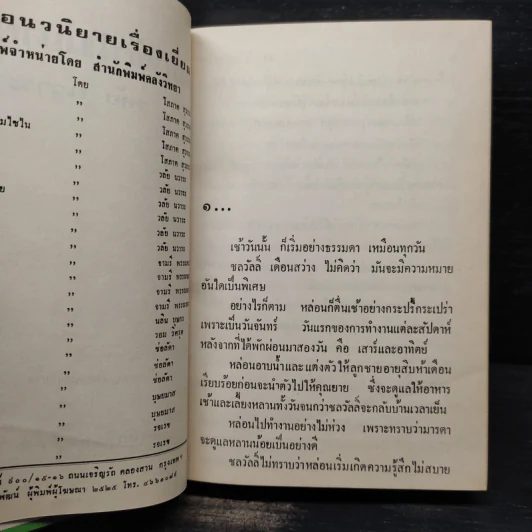 อนวนิยายเรื่องเยี่ยม
พ์จำหน่ายโดย สำนักพิมพ์คลังวิทยา
โดย
” โสภาค
” โสภาค
มไซใน ” โสภาค
” โสภาค
” โสภาค
” วลัย นวาระ
” วลัย นวาระ
ย ” วลัย นวาระ
” วลัย นวาระ
” วลัย นวาระ
” จามรี
” จามรี
” จามรี
” จามรี
” นลิน บุษกร
” รอม
” ช่อลัดา
” ช่อลัดา
” ช่อลัดา
” บุษยมาส
” บุษยมาส
” รจเรข
” รจเรข
๘๐๐/๑๕-๑๖ ถนนเจริญรัถ คลองสาน กรุงเทพฯ
พัฒน์ ผู้พิมพ์ผู้โฆษณา ๒๕๒๕ โทร.
๑...
เช้าวันนั้น ก็เริ่มอย่างธรรมดา เหมือนทุกวัน
ชลวัลลิ์ เดือนสว่าง ไม่คิดว่า มันจะมีความหมาย
อันใดเป็นพิเศษ
อย่างไรก็ตาม หล่อนก็ตื่นเช้าอย่างกระปรี้กระเปร่า
เพราะเป็นวันจันทร์ วันแรกของการทำงานแต่ละสัปดาห์
หลังจากที่ได้พักผ่อนมาสองวัน คือ เสาร์และอาทิตย์
หล่อนอาบน้ำและแต่งตัวให้ลูกชายอายุสิบห้าเดือน
เรียบร้อยก่อนจะนำตัวไปให้คุณยาย ซึ่งจะดูแลให้อาหาร
เช้าและเลี้ยงหลานทั้งวันจนกว่าชลวัลลิ์จะกลับบ้านเวลาเย็น
หล่อนไปทำงานอย่างไม่ห่วง เพราะทราบว่ามารดา
จะดูแลหลานน้อยเป็นอย่างดี
ชลวัลลิ์ไม่ทราบว่าหล่อนเริ่มเกิดความรู้สึกไม่สบาย